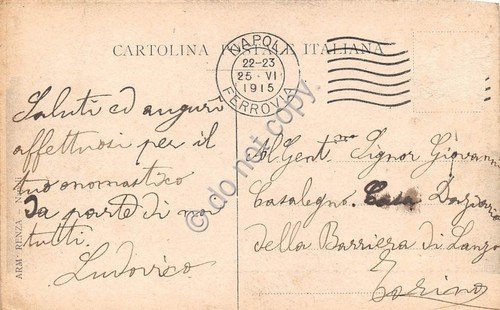 CARTOLINA POSTALE ITALIANA
NAPOLI
22-23
25 · VI
1915
FERROVIA
Saluti ed auguri
affettuosi per il
tuo onomastico
da parte di noi
tutti.
Ludovico
Al Gent.mo Signor Giovanni
Casalegno. Casa Daziaria
della Barriera di Lanzo
Torino
ARM· RENZA - N
do not copy.